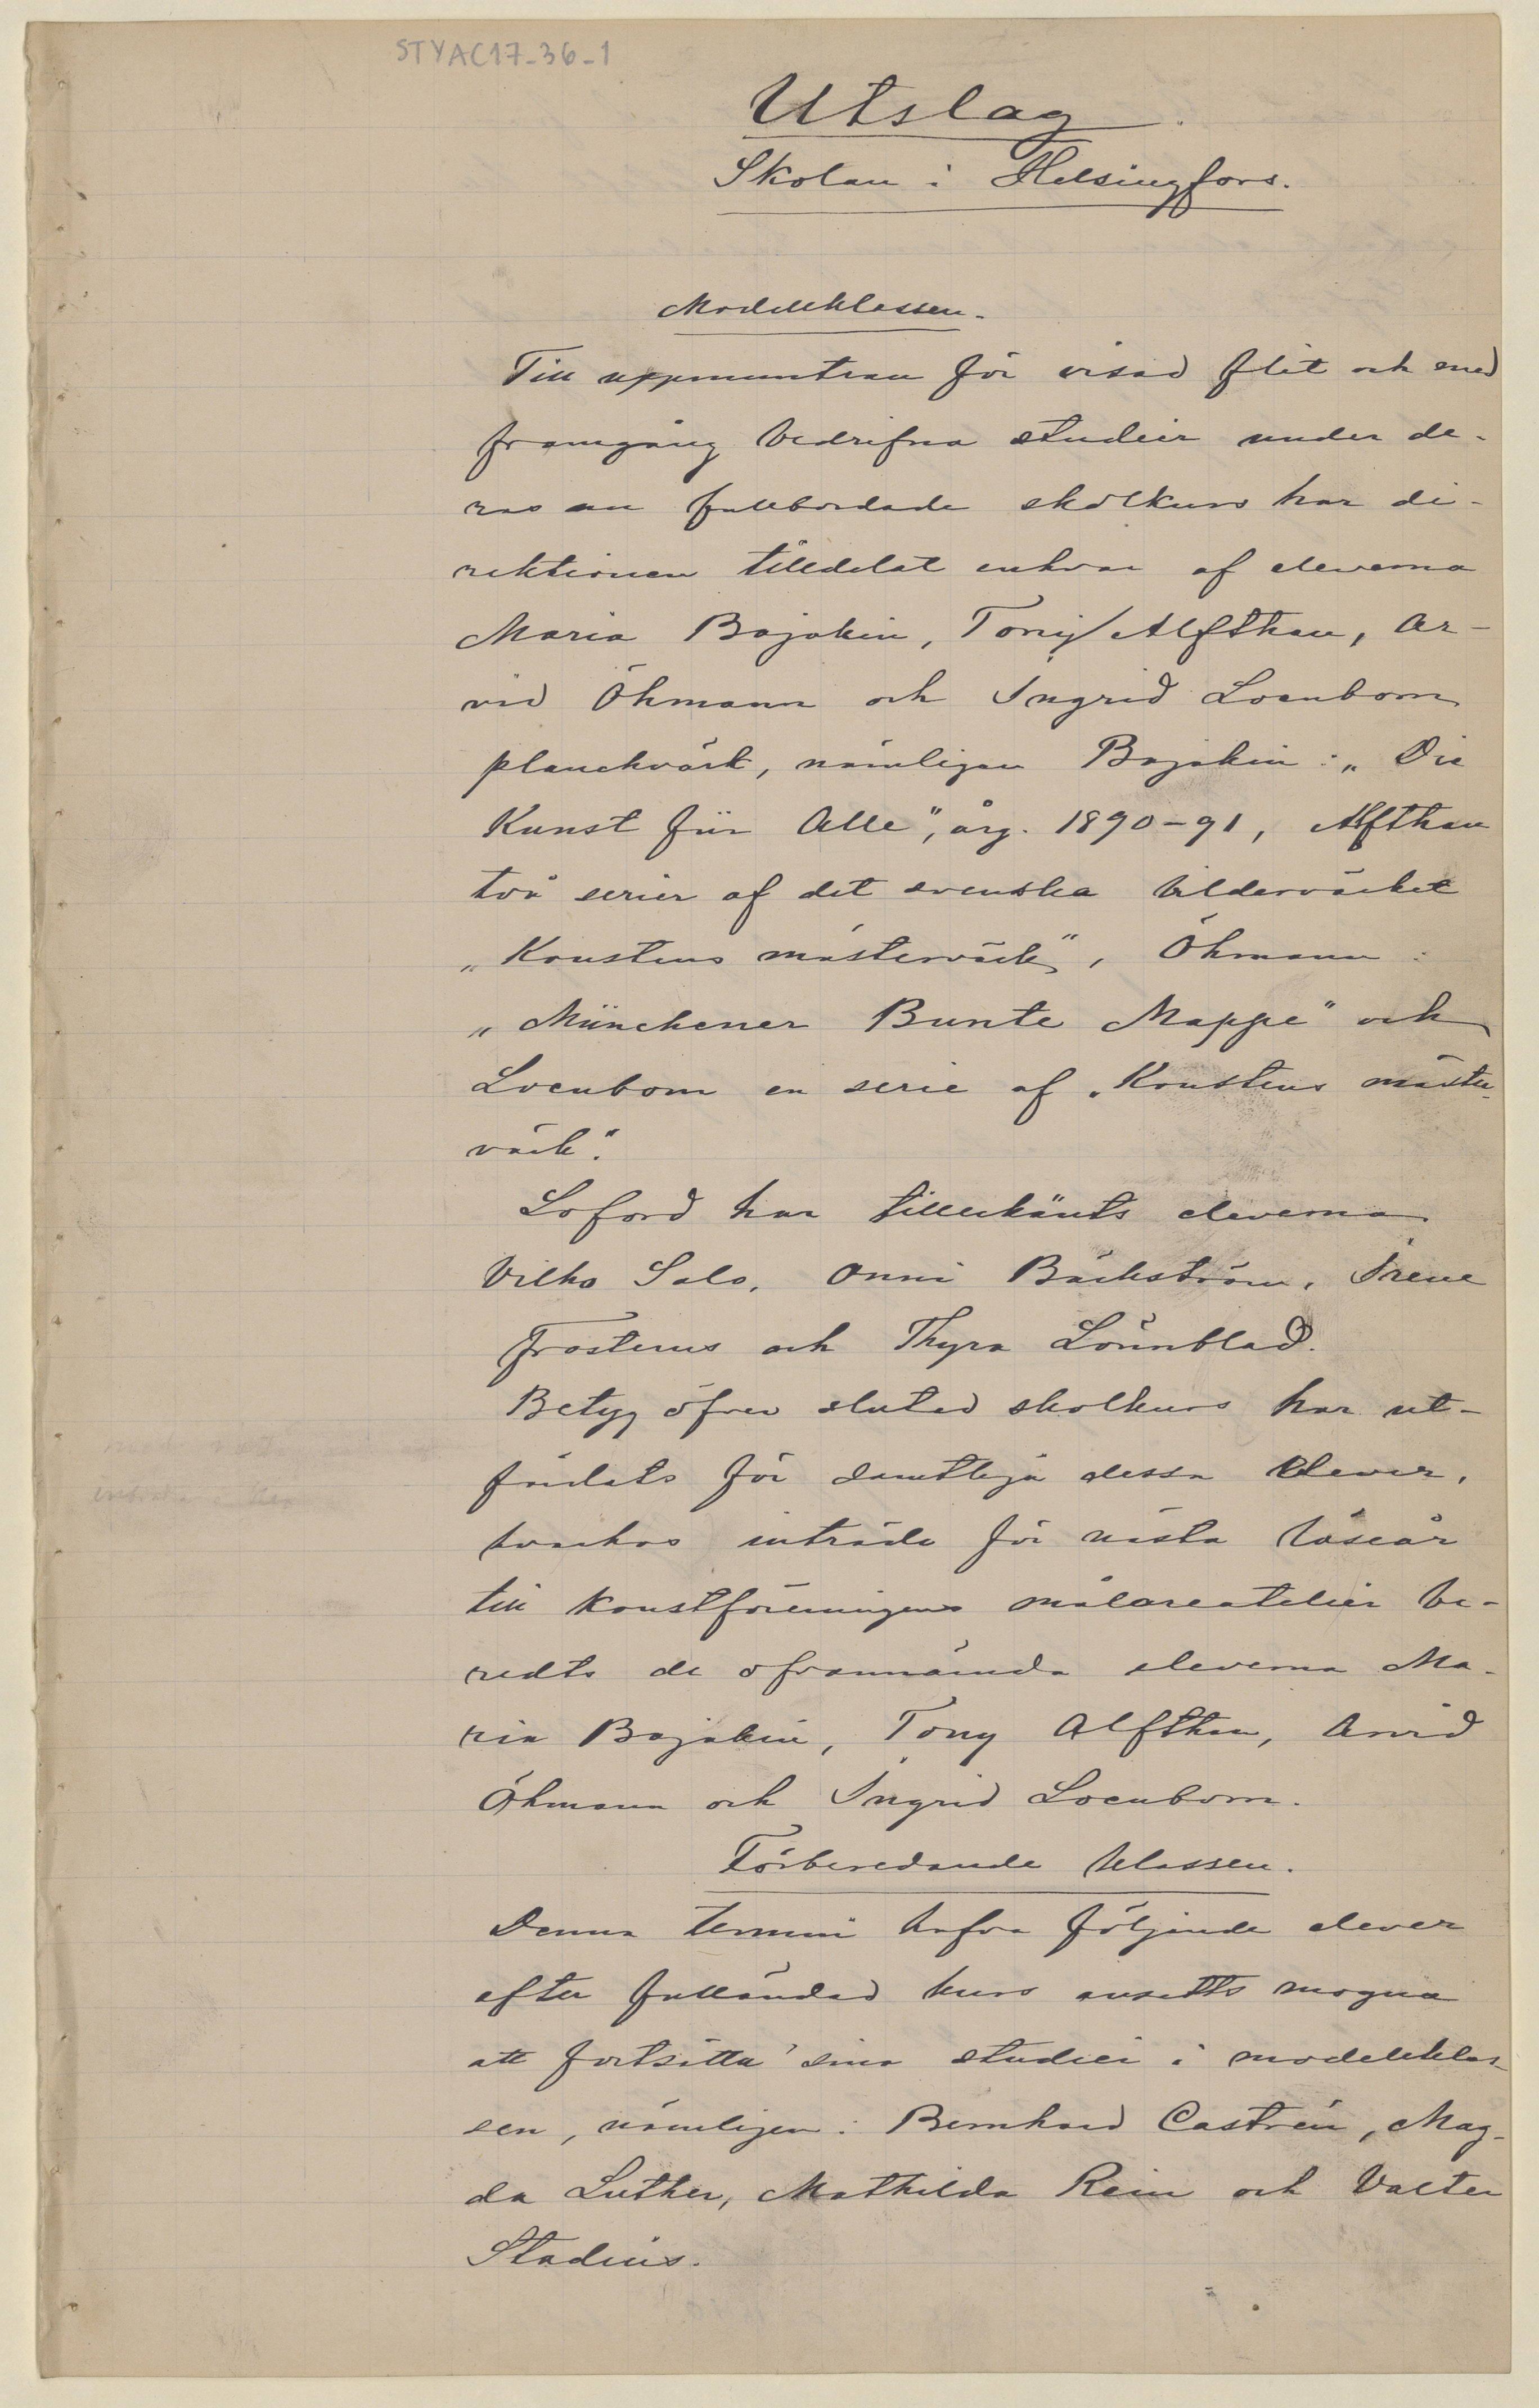 STYAC17-36-1
Utslag.
Skolan i Helsingfors.
Modellklassen.
Till uppmuntran för visad flit och med
framgång bedrifna studier under de-
ras nu fullbordade skolkurs har di-
rektionen tilldelat enhvar af eleverna
Maria Bojakin, Tony Alfthan, Ar-
vid Öhmann och Ingrid Locnbom
planchvärk, nämligen Bojakin: „Die
Kunst für Alle", årg. 1890-91, Alfthan
två serier af det svenska bildervärket
„Konstens mästervärk", Öhmann:
„Münchener Bunte Mappe" och
Locnbom en serie af „Konstens mäster-
värk".
Loford har tillerkänts eleverna
Vilho Salo, Onni Bäckström, Irene
Frosterus och Thyra Lönnblad.
Betyg öfver slutad skolkurs har ut-
färdats för samtliga dessa elever,
hvarhos inträde för nästa läseår
till Konstföreningens målareatelier be-
redts de ofvannämda eleverna Ma-
ria Bojakin, Tony Alfthan, Arvid
Öhmann och Ingrid Locnbom.
Förberedande klassen.
Denna termin hafva följande elever
efter fulländad kurs ansetts mogna
att fortsätta sina studier i modellklas-
sen, nämligen: Bernhard Castrén, Mag-
da Luther, Mathilda Rein och Valter
Stadius.